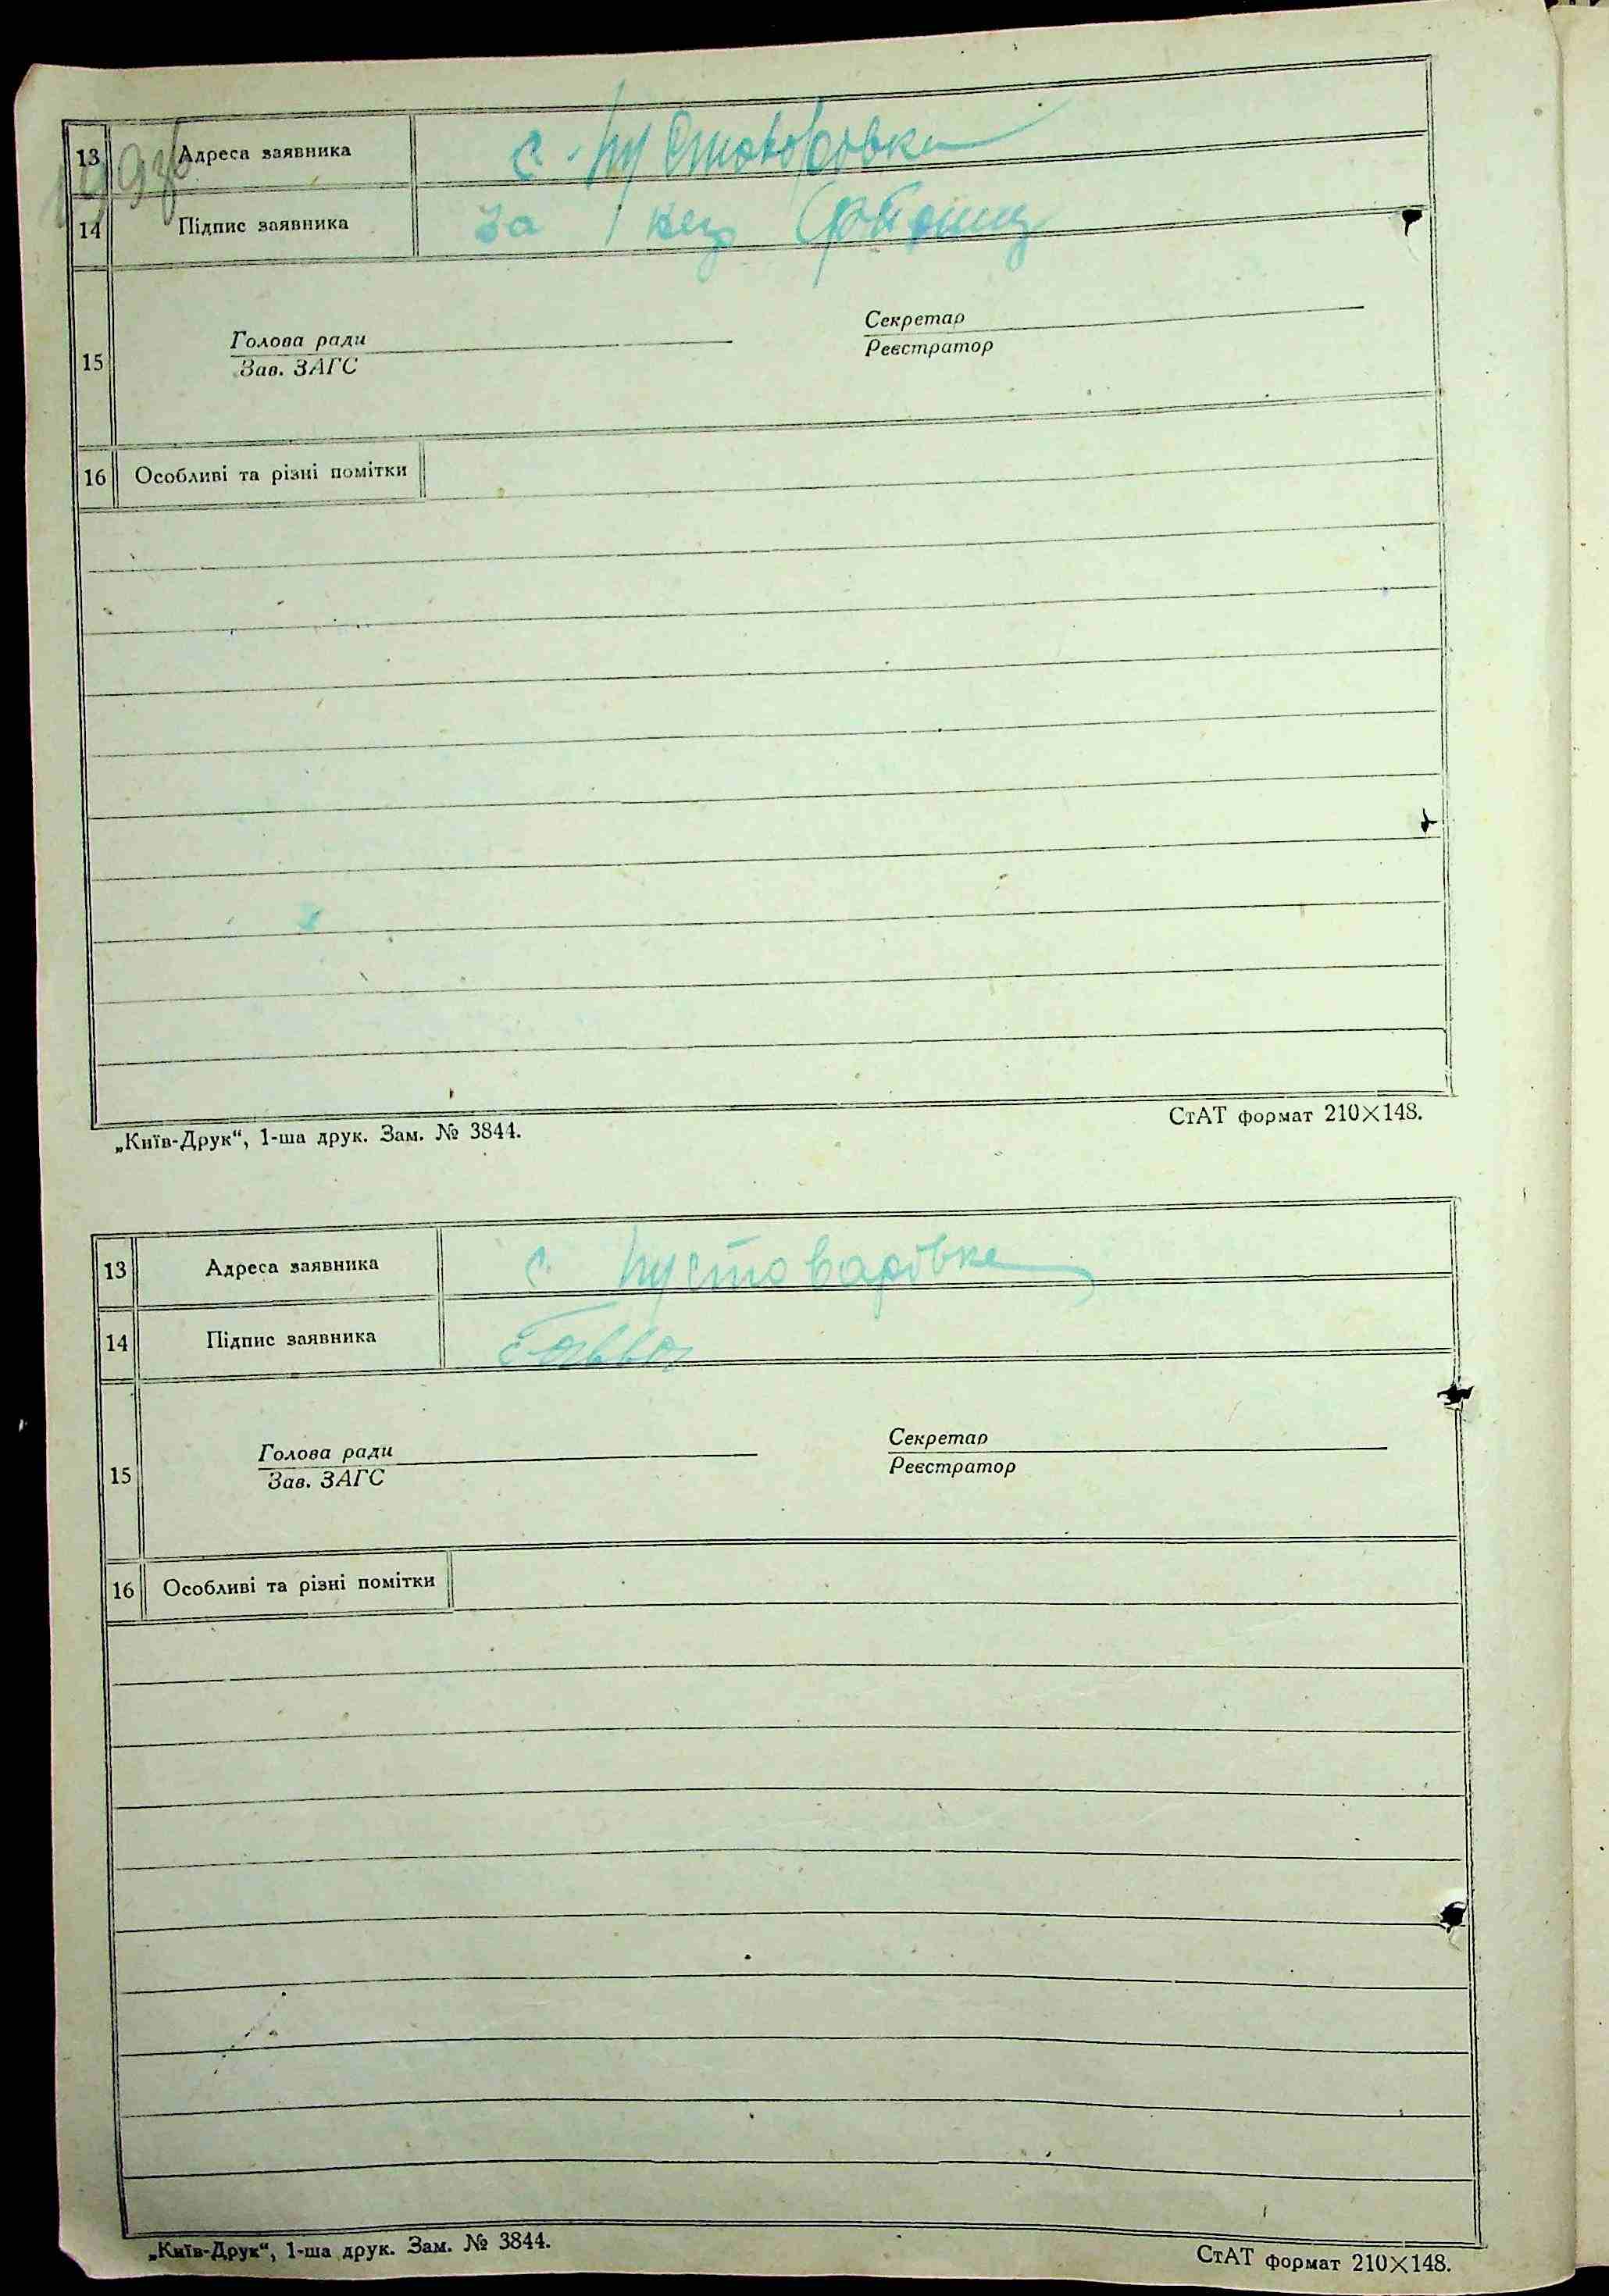 13 Адреса заявника с. Пустоворовка
14 Підпис заявника За
15 Голова ради Секретар
Зав. ЗАГС Реєстратор
16 Особливі та різні помітки
„Київ-Друк“, 1-ша друк. Зам. № 3844. СтАТ формат 210×148.
13 Адреса заявника с Пустоваровка
14 Підпис заявника
15 Голова ради Секретар
Зав. ЗАГС Реєстратор
16 Особливі та різні помітки
„Київ-Друк“, 1-ша друк. Зам. № 3844. СтАТ формат 210×148.